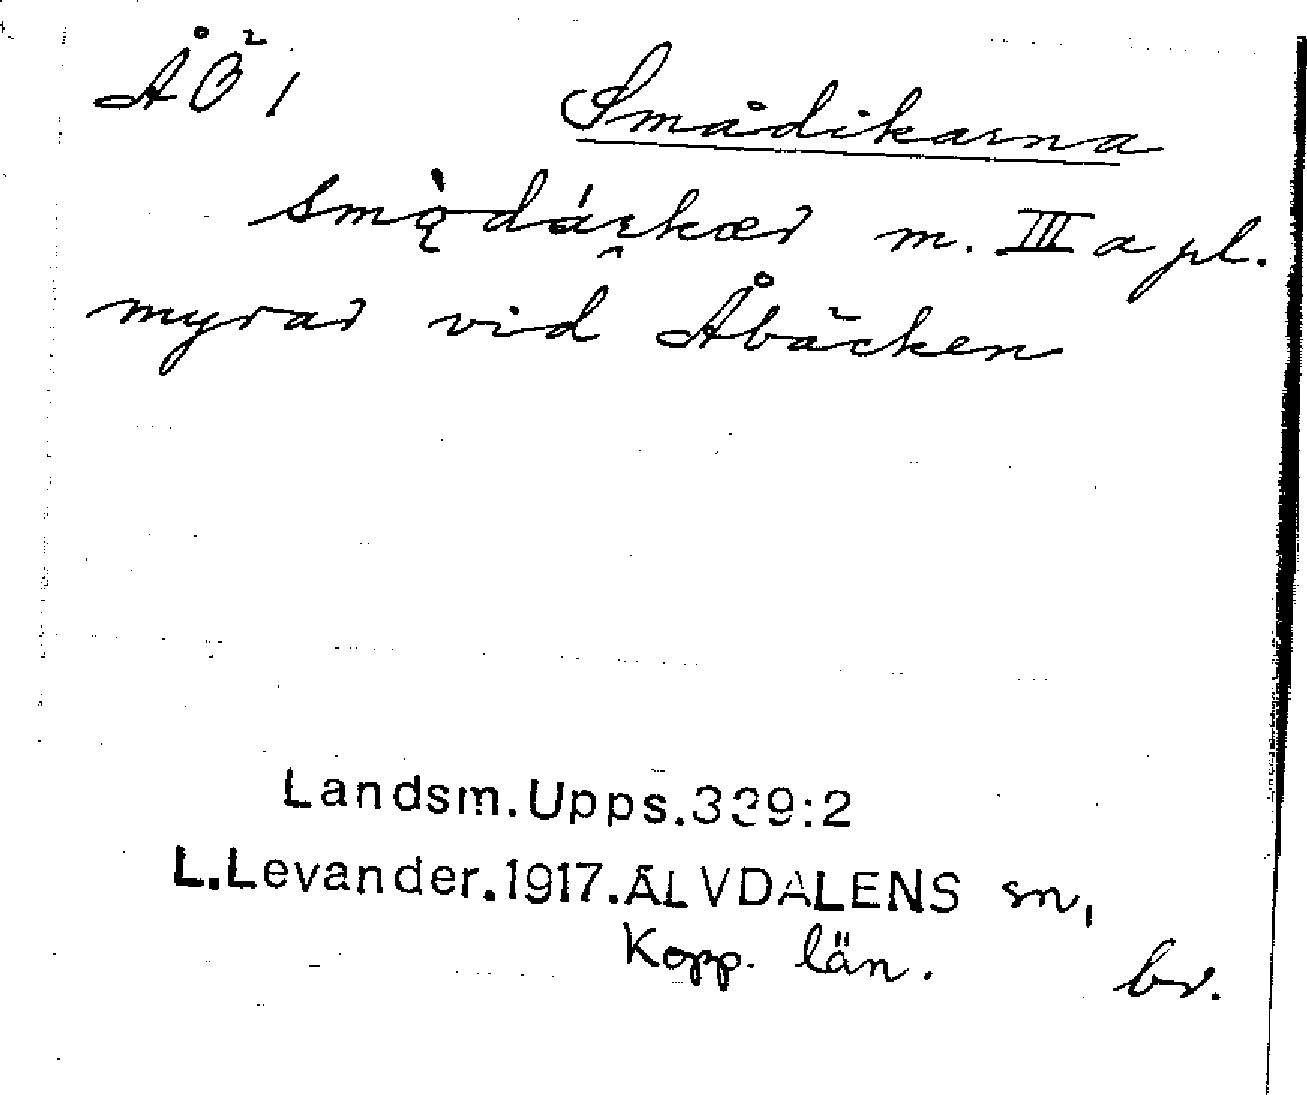 ÅÖ² 1
Smådikarna
m. III a pl.
myrar vid Åbäcken
Landsm.Upps.339:2
L.Levander.1917.ÄLVDALENS sn,
Kopp. län.
br.